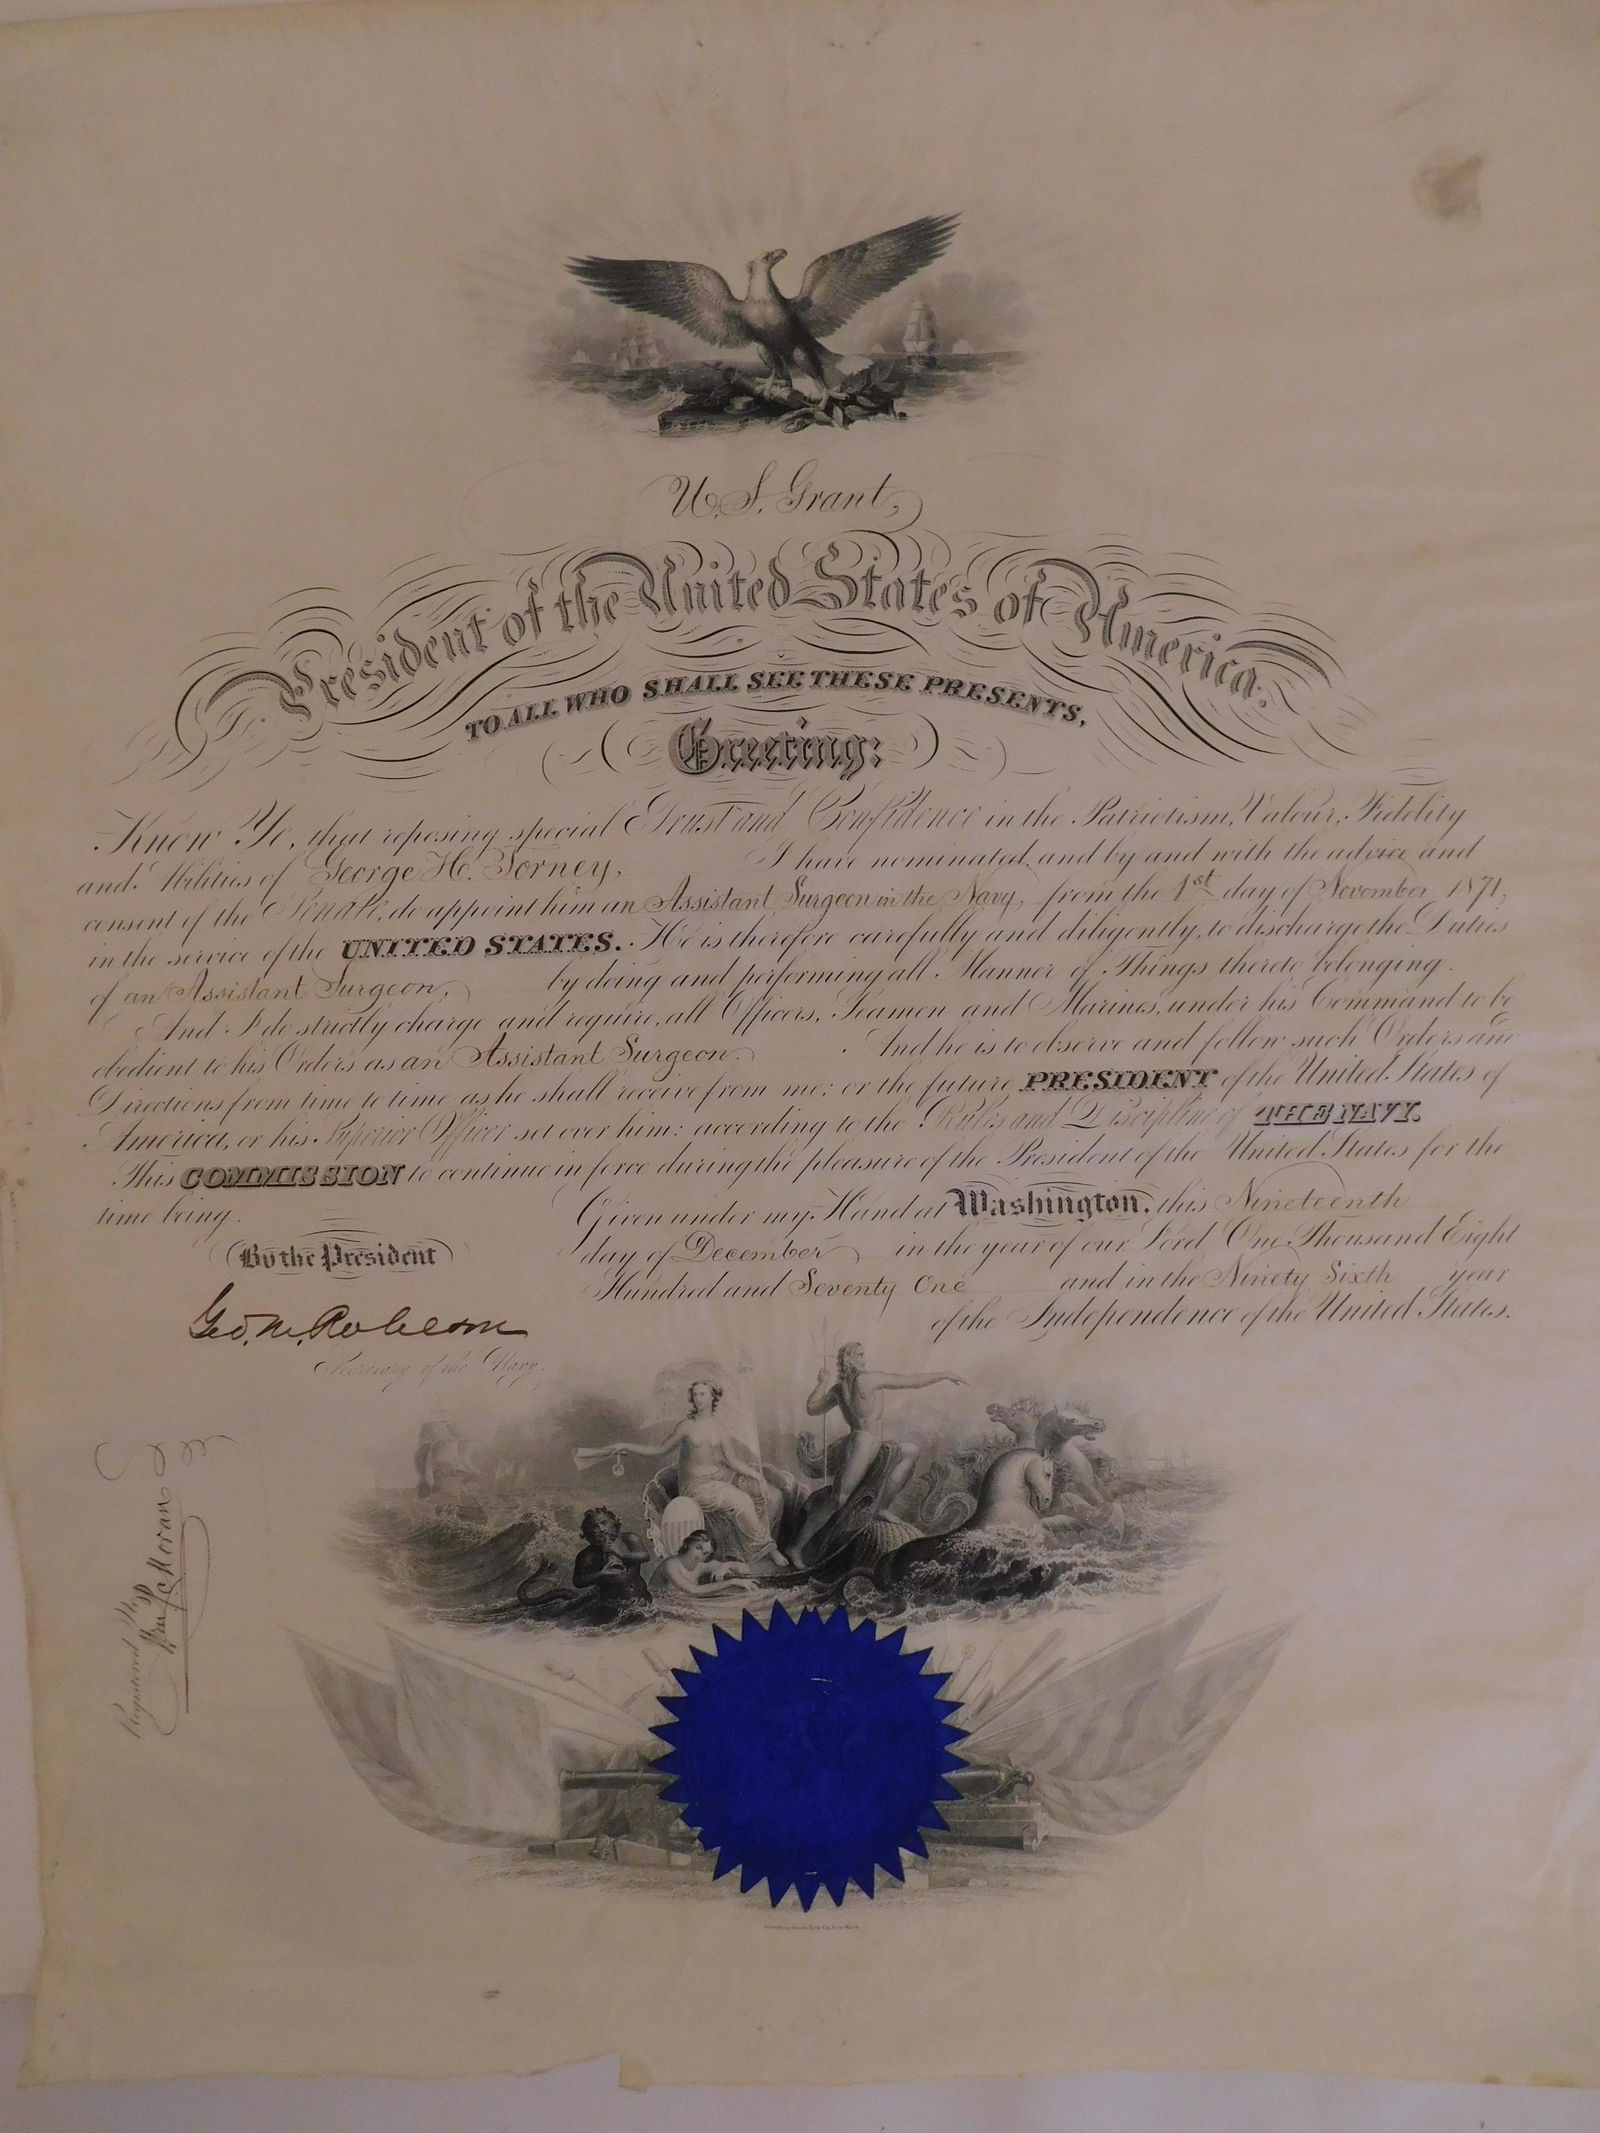 U. S. Grant,
President of the United States of America.
TO ALL WHO SHALL SEE THESE PRESENTS,
Greeting:
Know Ye, that reposing special Trust and Confidence in the Patriotism, Valour, Fidelity
and Abilities of George H. Torney, I have nominated, and by and with the advice and
consent of the Senate, do appoint him an Assistant Surgeon in the Navy, from the 1st day of November, 1871,
in the service of the UNITED STATES. He is therefore carefully and diligently to discharge the Duties
of an Assistant Surgeon, by doing and performing all Manner of Things thereto belonging.
And I do strictly charge and require, all Officers, Seamen and Marines, under his Command to be
obedient to his Orders as an Assistant Surgeon. And he is to observe and follow such Orders and
Directions from time to time as he shall receive from me; or the future PRESIDENT of the United States of
America, or his Superior Officer set over him; according to the Rules and Discipline of THE NAVY.
This COMMISSION to continue in force during the pleasure of the President of the United States for the
time being.
Given under my Hand at Washington, this Nineteenth
day of December in the year of our Lord One Thousand Eight
Hundred and Seventy One and in the Ninety Sixth year
of the Independence of the United States.
By the President
Geo. M. Robeson
Secretary of the Navy.
Moran